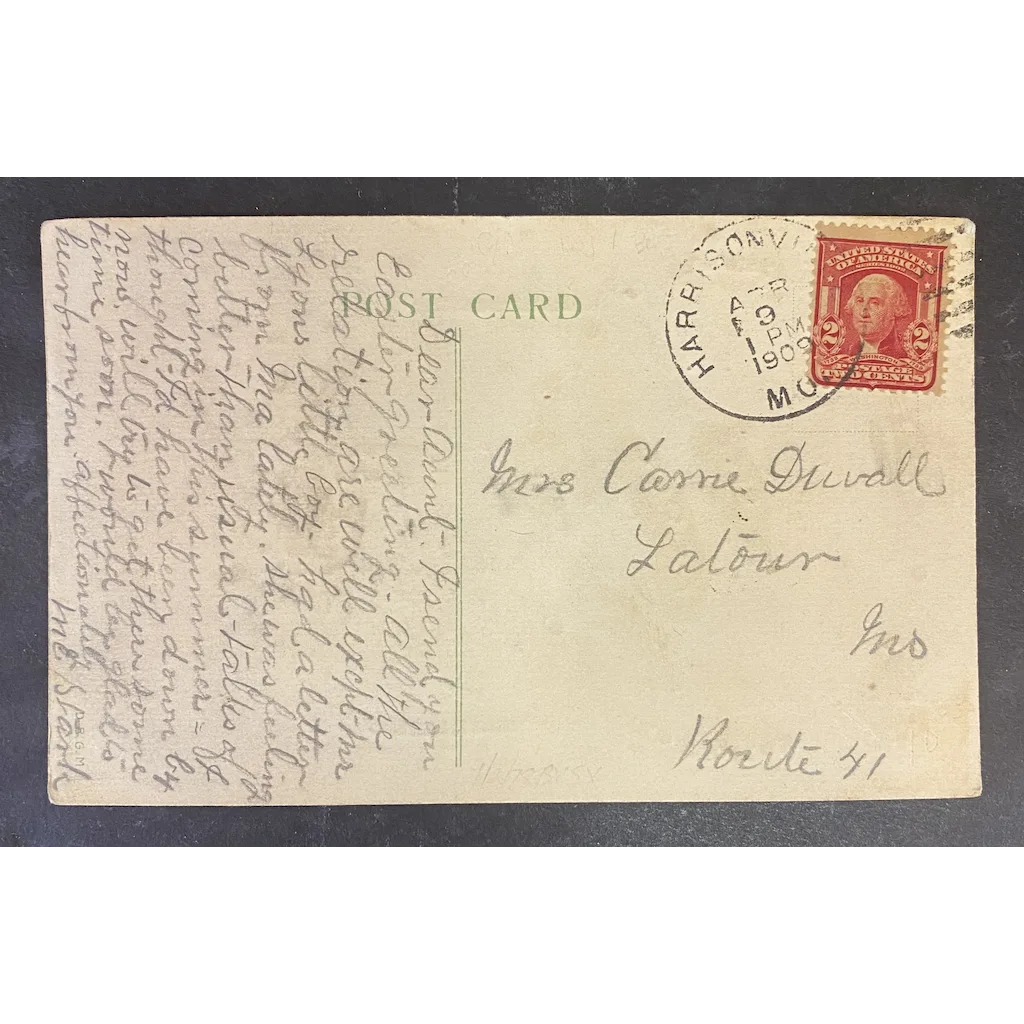 POST CARD
HARRISONVI
APR
9
1 PM
1909
MO
UNITED STATES
OF AMERICA
SERIES 1902
WASHINGTON
2 2
POSTAGE
TWO CENTS
Dear Aunt - I send you
Easter Greeting - all the
relations are well except Mr
Lyons little Cot - had a letter
from Ma lately. She was feeling
better than usual - talks of
coming in this summer = I
thought I'd have been down by
now, will try to get there some
time soon, & would be glad to
hear from you. affectionately
Mrs Carrie Duvall
Latour
Mo
Route 41